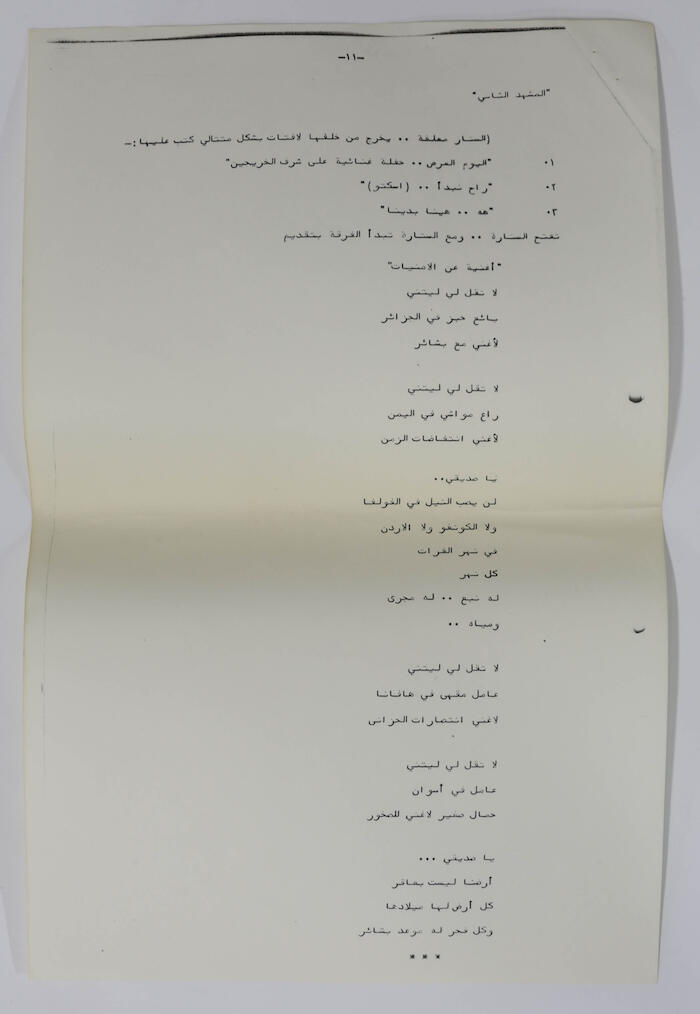 -١١-
"المشهد الثاني"
(الستار مغلقة .. يخرج من خلفها لافتات بشكل متتالي كتب عليها :-
٠١ "اليوم العرض .. حفلة غنائية على شرف الخريجين"
٠٢ "راح نبدأ .. (اسكتو)"
٠٣ "هه .. هينا بدينا"
تفتح الستارة .. ومع الستارة تبدأ الفرقة بتقديم
"أغنية عن الامنيات"
لا تقل لي ليتني
بائع خبز في الجزائر
لأغني مع بشائر
لا تقل لي ليتني
راع مواشي في اليمن
لأغني انتفاضات الزمن
يا صديقي..
لن يصب النيل في الفولغا
ولا الكونغو ولا الاردن
في نهر الفرات
كل نهر
له نبع .. له مجرى
ومياه ..
لا تقل لي ليتني
عامل مقهى في هافانا
لاغني انتصارات الحزانى
لا تقل لي ليتني
عامل في أسوان
حمال صغير لاغني للصخور
يا صديقي ...
أرضنا ليست بعاقر
كل أرض لها ميلادها
وكل فجر له موعد بشائر
* * *